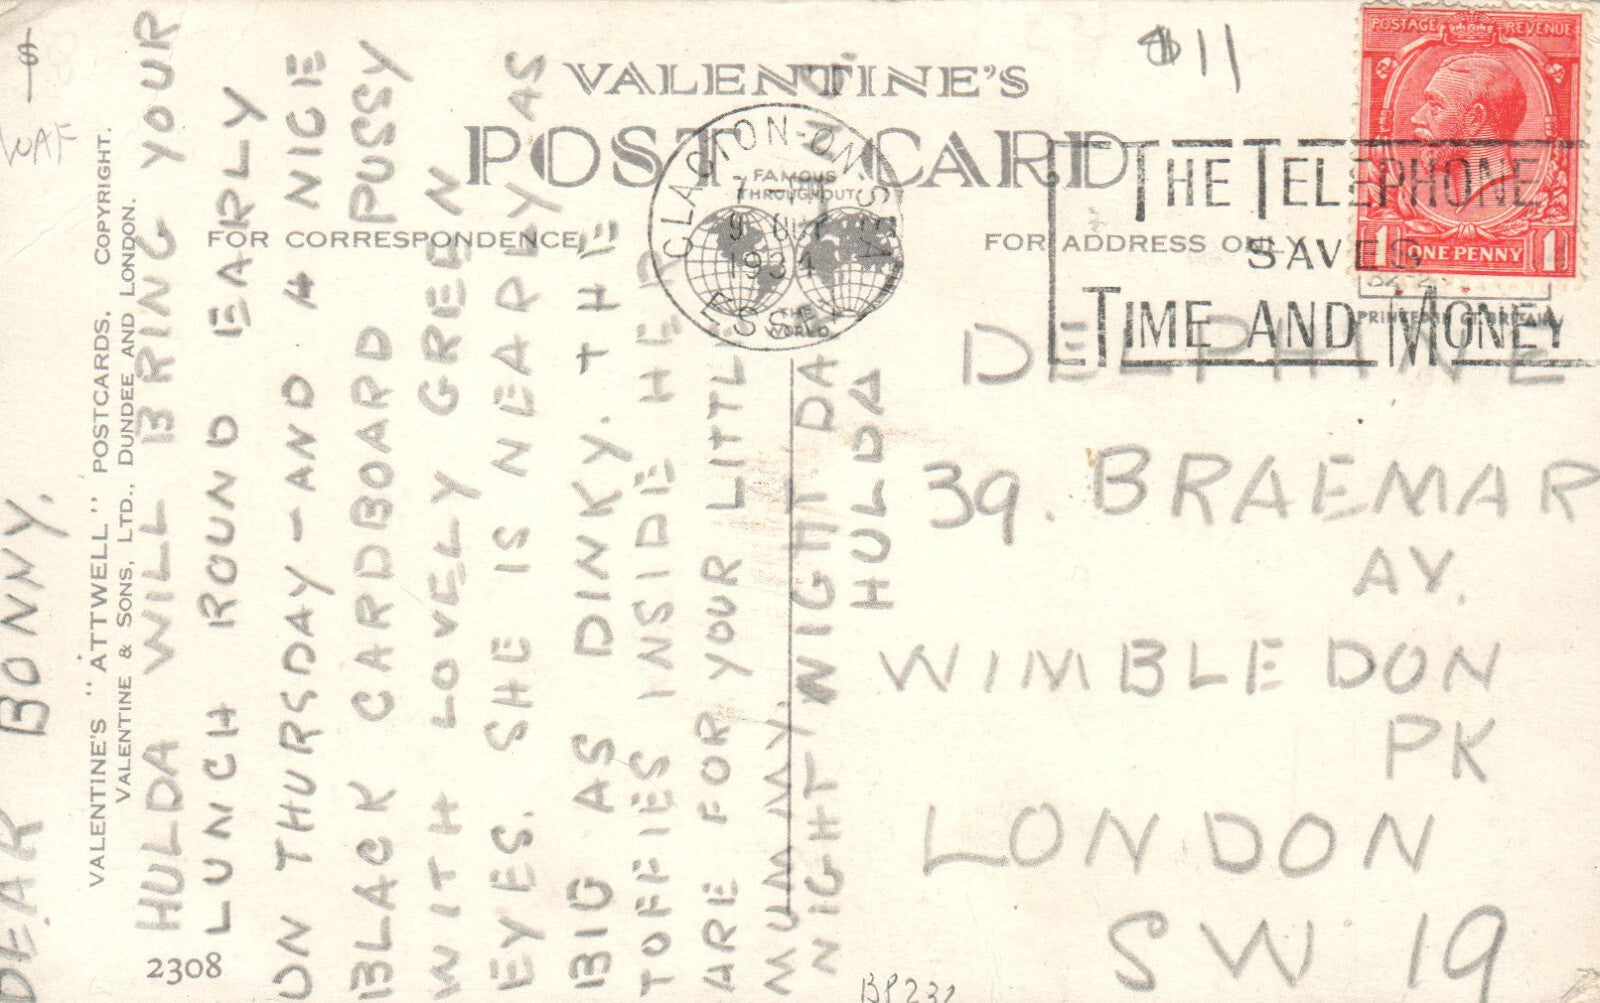 VALENTINE'S
POST CARD
FAMOUS
THROUGHOUT
THE
WORLD
FOR CORRESPONDENCE
FOR ADDRESS ONLY
PRINTED IN GT. BRITAIN
$11
POSTAGE REVENUE
1 ONE PENNY 1
CLACTON-ON-SEA
9 OCT
1934
ESSEX
THE TELEPHONE
SAVES
TIME AND MONEY
VALENTINE'S "ATTWELL" POSTCARDS. COPYRIGHT.
VALENTINE & SONS, LTD., DUNDEE AND LONDON.
DEAR BONNY,
HULDA WILL BRING YOUR
LUNCH ROUND EARLY
ON THURSDAY - AND A NICE
BLACK CARDBOARD PUSSY
WITH LOVELY GREEN
EYES. SHE IS NEARLY AS
BIG AS DINKY. THE
TOFFIES INSIDE HER
ARE FOR YOUR LITTLE
MUMMY. NIGHT DA
NIGHT
HULDA
DELPHINE
39. BRAEMAR
AV.
WIMBLEDON
PK
LONDON
SW 19
2308